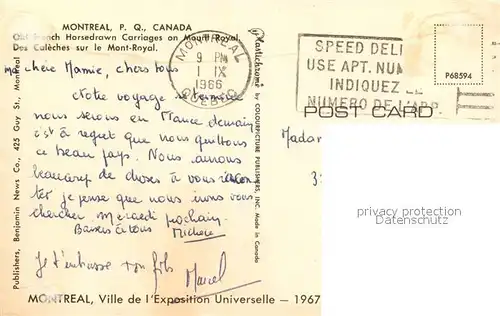 MONTREAL, P. Q., CANADA
Old French Horsedrawn Carriages on Mount Royal.
Des Calèches sur le Mont-Royal.
ma chère Mamie, chers tous
Notre voyage se termine
nous serons en France demain
c'est à regret que nous quittons
ce beau pays. Nous avons
beaucoup de choses à vous racon
ter je pense que nous irons vous
chercher mercredi prochain.
Baisers à tous
Michèle
Je t'embrasse ton fils
Marcel
MONTREAL, Ville de l'Exposition Universelle — 1967
Publishers, Benjamin News Co., 425 Guy St., Montreal
Plastichrome by COLOURPICTURE PUBLISHERS, INC. Made in Canada
MONTREAL
9 PM
1 IX
1966
QUEBEC
SPEED DELI
USE APT. NUM
INDIQUEZ LE
NUMÉRO DE L'APP
P68594
POST CARD
Madam
privacy protection
Datenschutz